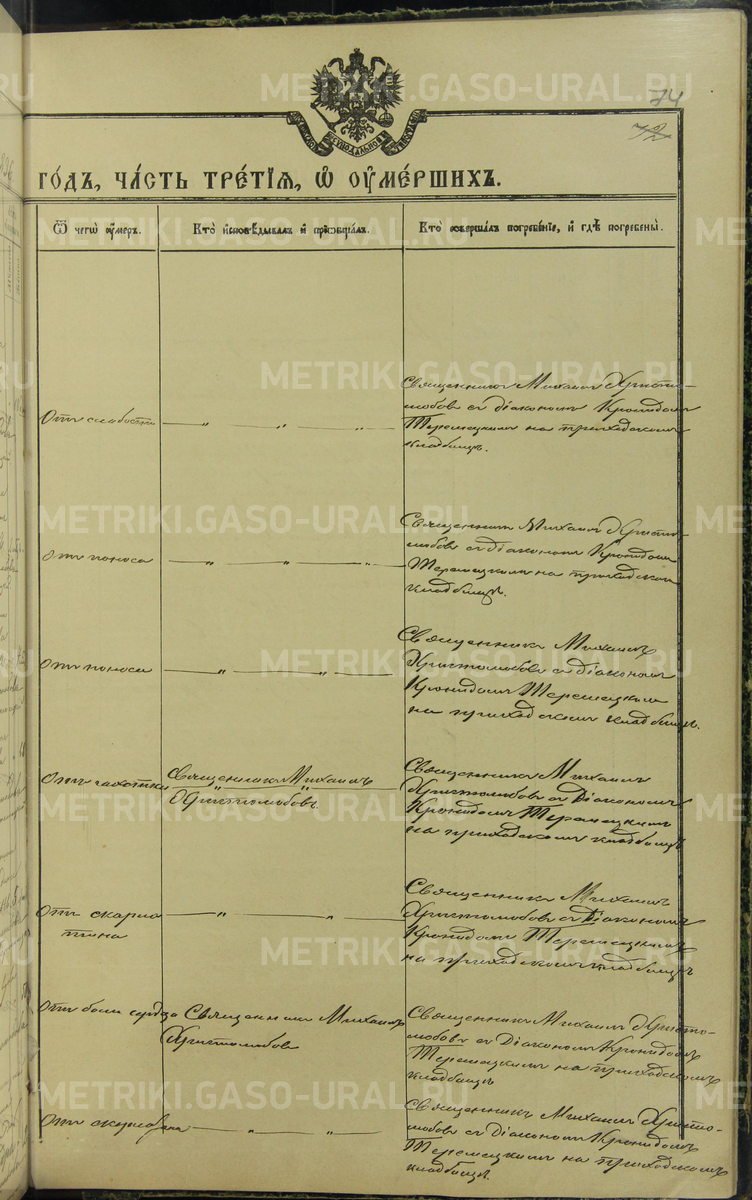 74
72
ГО́ДЪ, ЧА́СТЬ ТРЕ́ТІѦ, Ѡ҆ ОУ҆МЕ́РШИХЪ.
Ѿ чегѡ̀ ᲂу҆́меръ.
Кто̀ и҆сповѣ́дывалъ и҆ прїѡбща́лъ.
Кто̀ соверша́лъ погребе́нїе, и҆ гдѣ̀ погребены̀.
Отъ слабости
— „ — „ — „ —
Священникъ Михаилъ Христо-
любовъ съ діакономъ Кронидомъ
Теремецкимъ на приходскомъ
кладбищѣ.
Отъ поноса
— „ — „ — „ —
Священникъ Михаилъ Христо-
любовъ съ діакономъ Кронидомъ
Теремецкимъ на приходскомъ
кладбищѣ.
Отъ поноса
— „ — „ —
Священникъ Михаилъ
Христолюбовъ съ діакономъ
Кронидомъ Теремецкимъ
на приходскомъ кладбищѣ.
Отъ чахотки
Священникъ Михаилъ
Христолюбовъ.
Священникъ Михаилъ
Христолюбовъ съ Діакономъ
Кронидомъ Теремецкимъ
на приходскомъ кладбищѣ
Отъ скарла
тина
— „ — „ —
Священникъ Михаилъ
Христолюбовъ съ Діакономъ
Кронидомъ Теремецкимъ
на приходскомъ кладбищѣ
Отъ боли
Священникъ Михаилъ
Христолюбовъ
Священникъ Михаилъ Христо-
любовъ съ Діакономъ Кронидомъ
Теремецкимъ на приходскомъ
кладбищѣ
Отъ
— „ — „
Священникъ Михаилъ Христо-
любовъ съ Діакономъ Кронидомъ
Теремецкимъ на приходскомъ
кладбищѣ.
METRIKI.GASO-URAL.RU